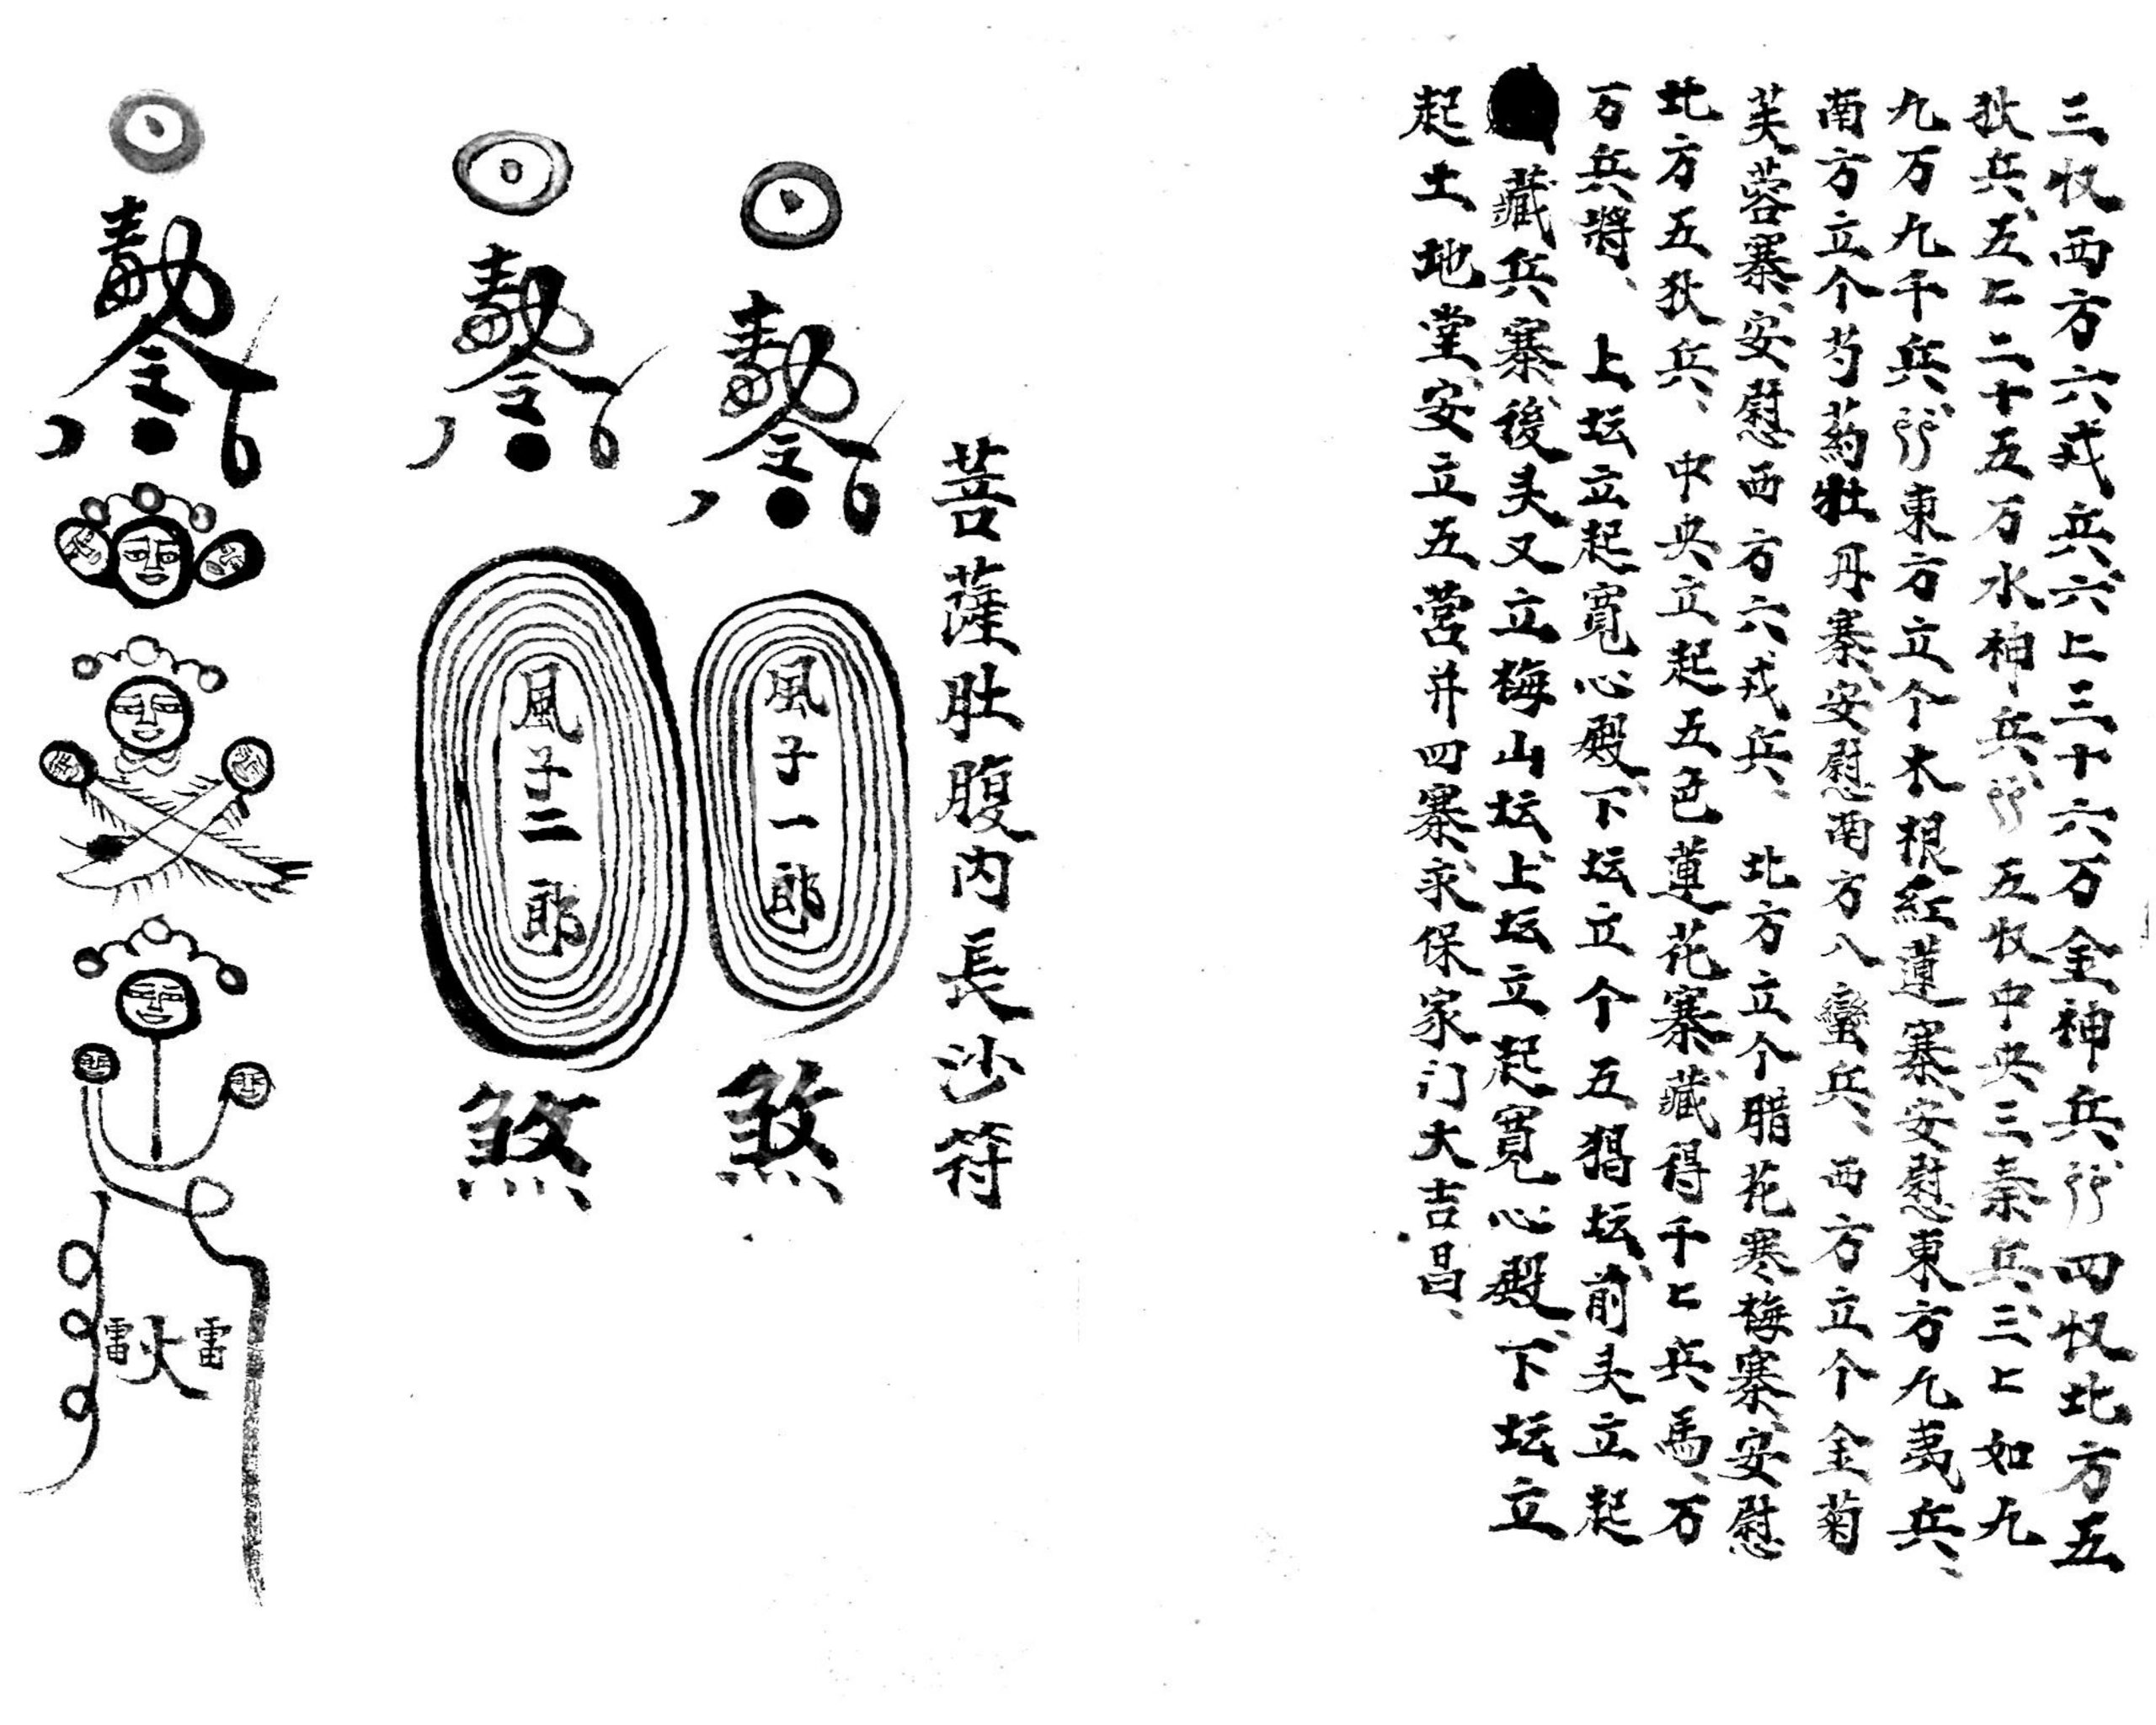 三收西方六戎兵六匕三十六万金神兵 四收北方五
狄兵五匕二十五万水神兵 五收中央三秦兵三匕如九
九万九千兵 東方立个木根紅蓮寨安慰東方九夷兵
南方立个芍药牡丹寨安慰南方八蠻兵、西方立个金菊
芙蓉寨安慰西方六戎兵、北方立个腊花寒梅寨安慰
北方五狄兵、中央立起五色蓮花寨藏得千匕兵馬、万
万兵將、上坛立起寬心殿下坛立个五猖坛前头立起
藏兵寨後头又立梅山坛上坛立起寬心殿下坛立
起土地堂安立五营并四寨求保家门大吉昌、
菩薩肚腹内長沙符
令
風子一郎
煞
令
風子二郎
煞
令
雷火雷